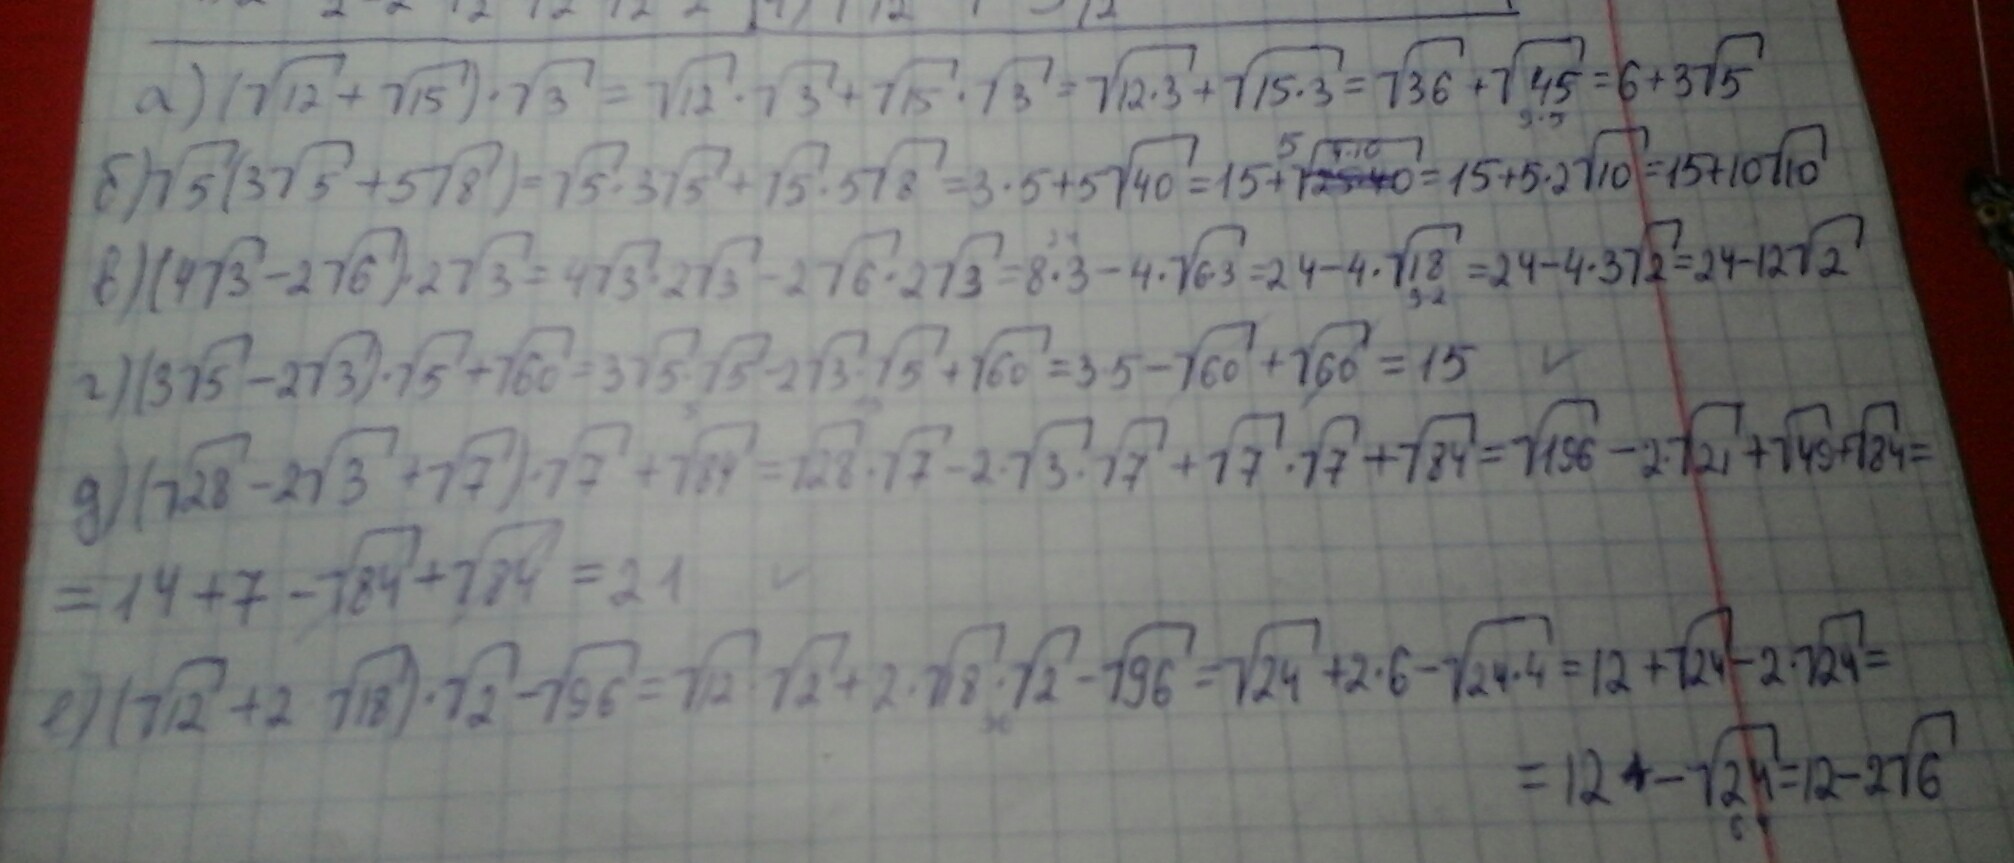 а) (√12 + √15)·√3 = √12·√3 + √15·√3 = √12·3 + √15·3 = √36 + √45 = 6 + 3√5
9·5
б) √5(3√5 + 5√8) = √5·3√5 + √5·5√8 = 3·5 + 5√40 = 15 + 5√4·10 = 15 + 5·2√10 = 15 + 10√10
в) (4√3 - 2√6)·2√3 = 4√3·2√3 - 2√6·2√3 = 8·3 - 4·√6·3 = 24 - 4·√18 = 24 - 4·3√2 = 24 - 12√2
9·2
г) (3√5 - 2√3)·√5 + √60 = 3√5·√5 - 2√3·√5 + √60 = 3·5 - √60 + √60 = 15 ✓
д) (√28 - 2√3 + √7)·√7 + √84 = √28·√7 - 2·√3·√7 + √7·√7 + √84 = √196 - 2·√21 + √49 + √84 =
= 14 + 7 - √84 + √84 = 21 ✓
е) (√12 + 2·√18)·√2 - √96 = √12·√2 + 2·√18·√2 - √96 = √24 + 2·6 - √24·4 = 12 + √24 - 2·√24 =
= 12 - √24 = 12 - 2√6